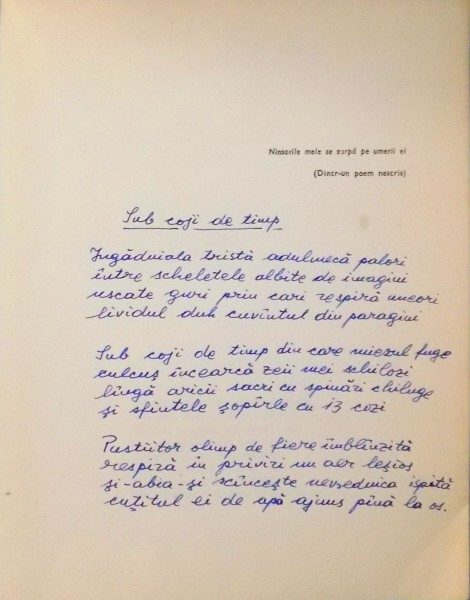 Ninsorile mele se surpă pe umerii ei
(Dintr-un poem nescris)
Sub coji de timp
Îngăduiala tristă adulmecă palori
între scheletele albite de imagini
uscate guri prin cari respiră uneori
lividul duh cuvîntul din paragini
Sub coji de timp din care miezul fuge
culcuș încearcă zeii mei schilozi
lîngă aricii sacri cu spinări chiluge
și sfintele șopîrle cu 13 cozi
Pustiitor olimp de fiere îmblînzită
respiră în priviri un aer leșios
și-abia-și scîncește nevrednica ispită
cuțitul ei de apă ajuns pînă la os.